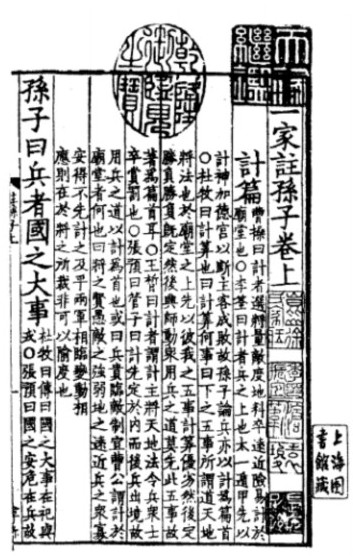 天祿繼鑑
乾隆御覽之寶
一家註孫子卷上
計篇
曹操曰計者選將量敵度地料卒遠近險易計於
廟堂也○李筌曰計者兵之上也太一遁甲先以
計神加德宮以斷主客成敗故孫子論兵亦以計為篇首
○杜牧曰計算也曰計算何事曰下之五事所謂道天地
將法也於廟堂之上先以彼我之五事計算優劣然後定
勝負勝負既定然後興師動衆用兵之道莫先此五事故
著為篇首耳○王晳曰計者謂計主將天地法令兵衆士
卒賞罰也○張預曰管子曰計先定於內而後兵出境故
用兵之道以計為首也或曰兵貴臨敵制宜曹公謂計於
廟堂者何也曰將之賢愚敵之強弱地之遠近兵之衆寡
安得不先計之及乎兩軍相臨變動相
應則在於將之所裁非可以隃度也
孫子曰兵者國之大事
杜牧曰傳曰國之大事在祀與
戎○張預曰國之安危在兵故
上海圖
書館藏